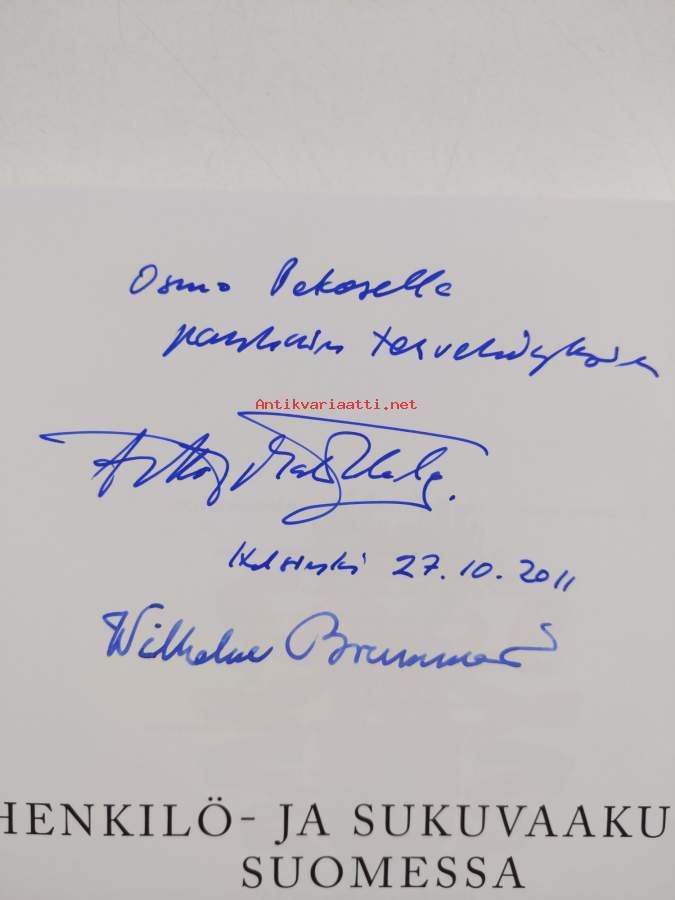 Osmo Pekoselle
parhain terveisin
Antikvariaatti.net
Helsinki 27.10.2011
Wilhelm Brummer
HENKILÖ- JA SUKUVAAKU
SUOMESSA